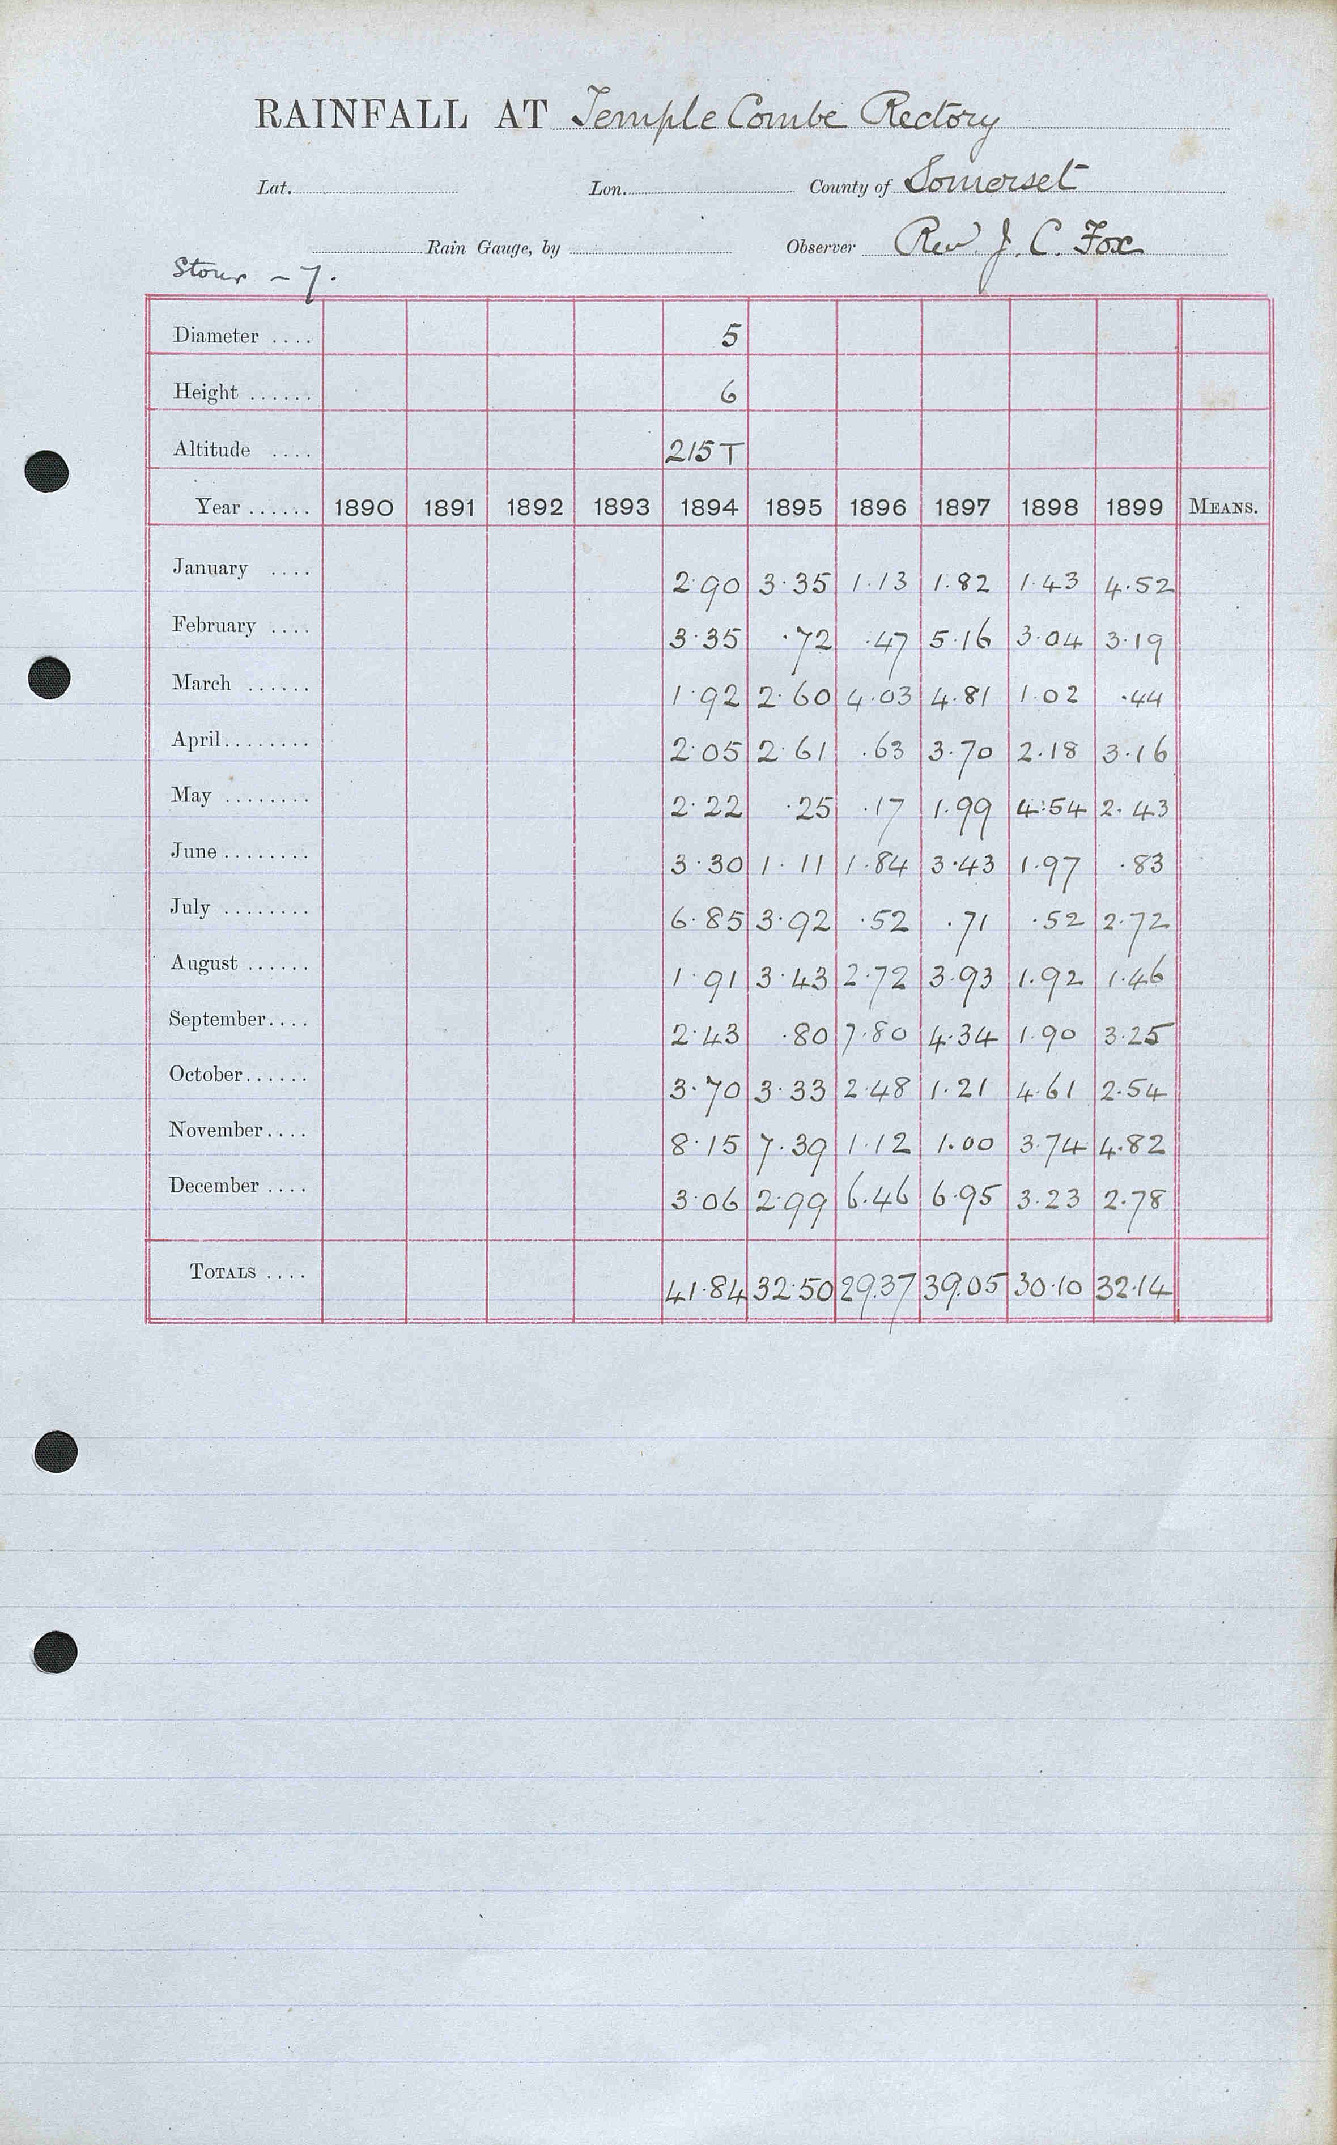 RAINFALL AT Temple Combe Rectory
Lat. Lon. County of Somerset
Rain Gauge, by Observer Rev. J. C. Fox
Stour - 7.
Diameter .... 5
Height ...... 6
Altitude .... 215 T
Year ...... 1890 1891 1892 1893 1894 1895 1896 1897 1898 1899 MEANS.
January .... 2.90 3.35 1.13 1.82 1.43 4.52
February .... 3.35 .72 .47 5.16 3.04 3.19
March ...... 1.92 2.60 4.03 4.81 1.02 .44
April ........ 2.05 2.61 .63 3.70 2.18 3.16
May ........ 2.22 .25 .17 1.99 4.54 2.43
June ........ 3.30 1.11 1.84 3.43 1.97 .83
July ........ 6.85 3.92 .52 .71 .52 2.72
August ...... 1.91 3.43 2.72 3.93 1.92 1.46
September.... 2.43 .80 7.80 4.34 1.90 3.25
October...... 3.70 3.33 2.48 1.21 4.61 2.54
November.... 8.15 7.39 1.12 1.00 3.74 4.82
December .... 3.06 2.99 6.46 6.95 3.23 2.78
TOTALS .... 41.84 32.50 29.37 39.05 30.10 32.14